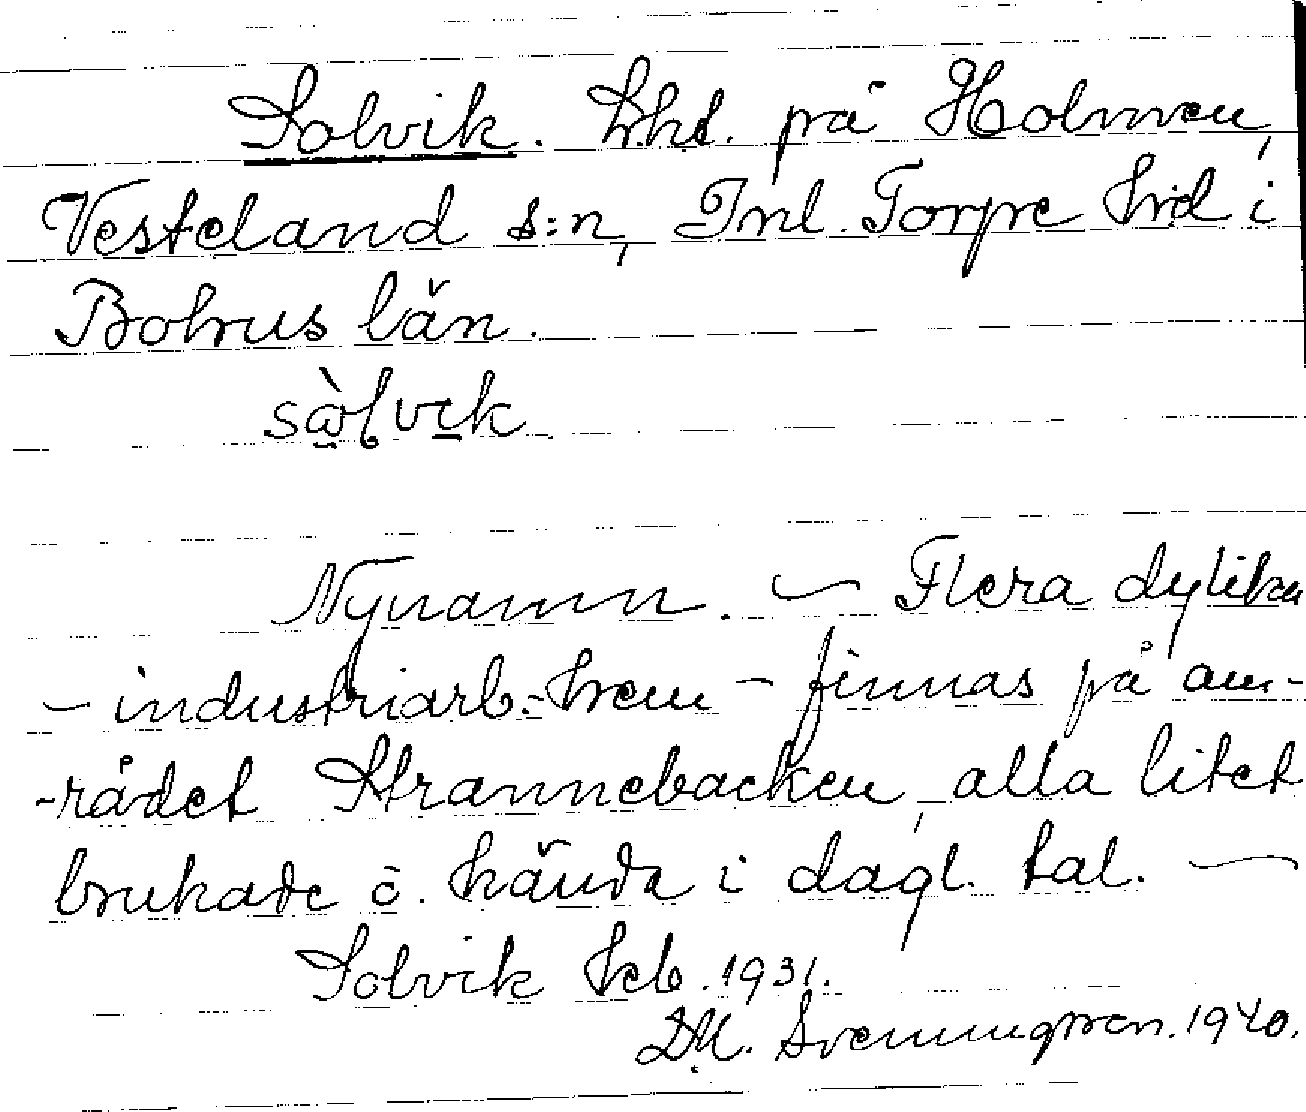 Solvik. Lht. på Holmen,
Vesteland s:n, Inl. Torpe hrd i
Bohus län.
sòlvik
Nynamn. — Flera dylika
- industriarb.-hem - finnas på om-
-rådet Strannebacken, alla litet
brukade o. kända i dagl. tal. —
Solvik Keb. 1931.
D.M. Svenungsson. 1940.